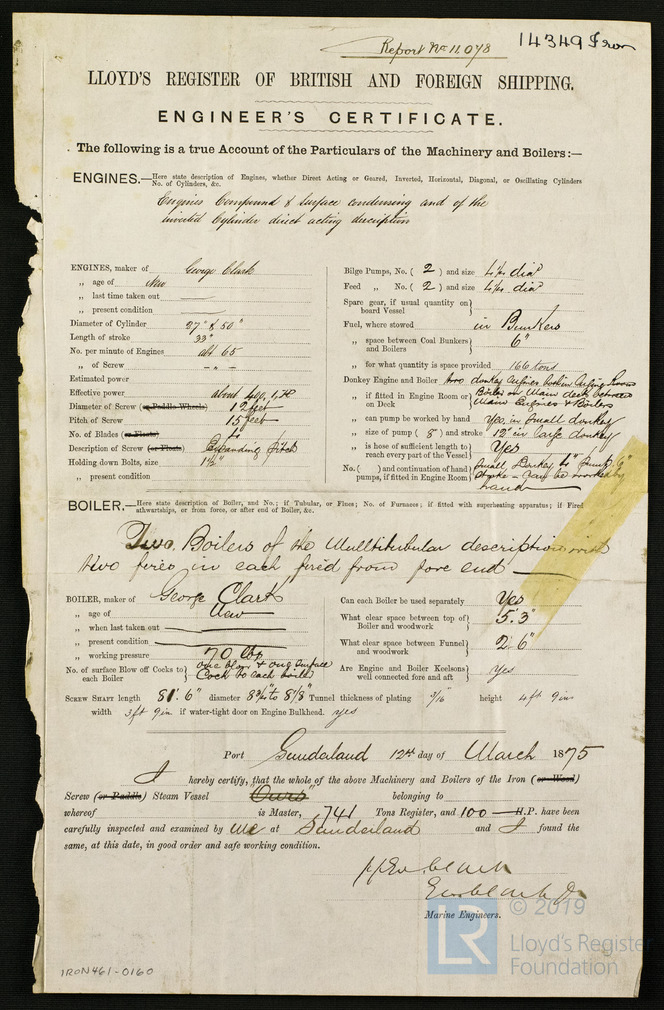 Report No 11,078
14349 Iron
LLOYD'S REGISTER OF BRITISH AND FOREIGN SHIPPING.
ENGINEER'S CERTIFICATE.
The following is a true Account of the Particulars of the Machinery and Boilers:—
ENGINES.—Here state description of Engines, whether Direct Acting or Geared, Inverted, Horizontal, Diagonal, or Oscillating Cylinders
No. of Cylinders, &c.
Engines Compound & Surface condensing and of the
inverted Cylinder direct acting description
ENGINES, maker of George Clark
„ age of New
„ last time taken out
„ present condition
Diameter of Cylinder 27" & 50"
Length of stroke 33"
No. per minute of Engines abt 65
„ of Screw - „ -
Estimated power
Effective power about 400, I,H
Diameter of Screw (or Paddle Wheels) 12 feet
Pitch of Screw 15 feet
No. of Blades (or Floats) 4
Description of Screw (or Floats) Expanding pitch
Holding down Bolts, size 1½"
„ present condition
Bilge Pumps, No. ( 2 ) and size dia
Feed „ No. ( 2 ) and size dia
Spare gear, if usual quantity on
board Vessel
Fuel, where stowed in Bunkers
„ space between Coal Bunkers
and Boilers 6"
„ for what quantity is space provided 166 tons
Donkey Engine and Boiler two donkey Engines both in Engine Room
„ if fitted in Engine Room or
on Deck Boiler on Main deck between
Main Engines & Boilers
„ can pump be worked by hand Yes, in Small donkey
„ size of pump ( 8" ) and stroke 12" in large donkey
„ is hose of sufficient length to
reach every part of the Vessel Yes
No. ( ) and continuation of hand
pumps, if fitted in Engine Room Small Donkey 4" Pump 6"
Stroke - can be worked by
hand
BOILER.—Here state description of Boiler, and No.; if Tubular, or Flues; No. of Furnaces; if fitted with superheating apparatus; if Fired
athwartships, or from force, or after end of Boiler, &c.
Two Boilers of the Multitubular description with
two fires in each fired from fore end
BOILER, maker of George Clark
„ age of New
„ when last taken out
„ present condition
„ working pressure 70 lbs
No. of surface Blow off Cocks to
each Boiler one blow & one Surface
Cock to each boiler
Can each Boiler be used separately Yes
What clear space between top of
Boiler and woodwork 5'.3"
What clear space between Funnel
and woodwork 2'.6"
Are Engine and Boiler Keelsons
well connected fore and aft Yes
SCREW SHAFT length 81'.6" diameter 8¾" to 8⅛" Tunnel thickness of plating 3/16 height 4 ft 9 in
width 3 ft 9 in if water-tight door on Engine Bulkhead. yes
Port Sunderland 12th day of March 1875
I hereby certify, that the whole of the above Machinery and Boilers of the Iron (or Wood)
Screw (or Paddle) Steam Vessel "Ours" belonging to
whereof is Master, 741 Tons Register, and 100 H.P. have been
carefully inspected and examined by me at Sunderland and I found the
same, at this date, in good order and safe working condition.
Marine Engineers.
IRON461-0160
LR
© 2019
Lloyd's Register
Foundation